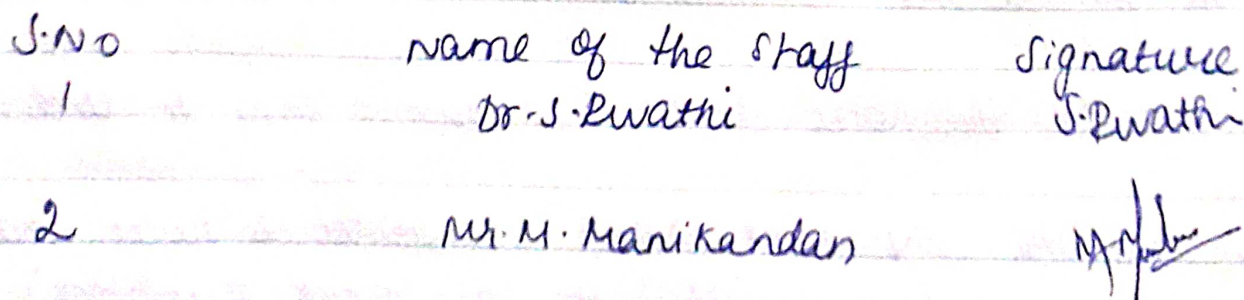 S.NO Name of the Staff Signature
1 Dr. S. Rwathi S. Rwathi
2 Mr. M. Manikandan